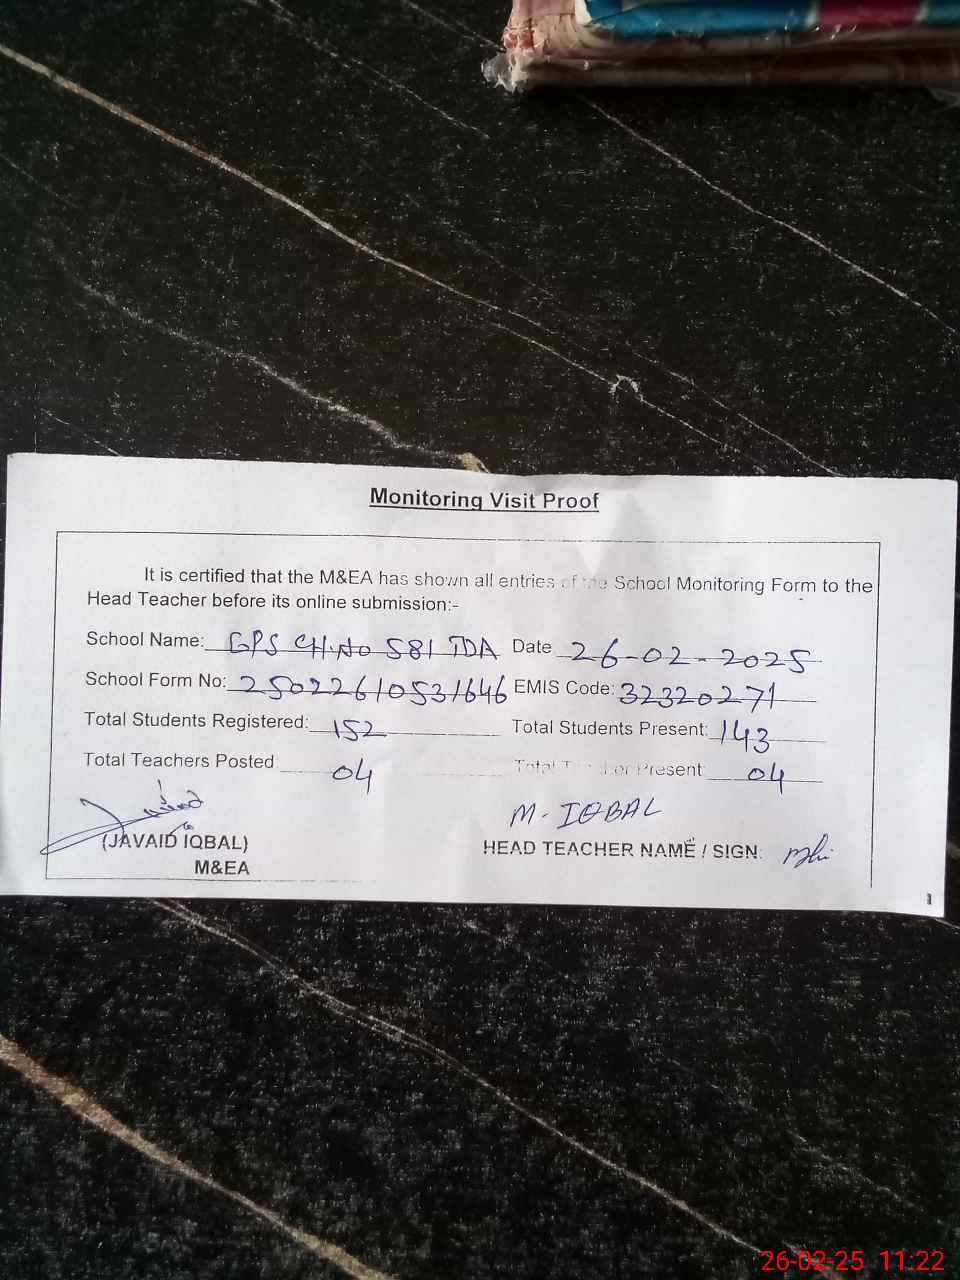 Monitoring Visit Proof
It is certified that the M&EA has shown all entries of the School Monitoring Form to the
Head Teacher before its online submission:-
School Name: GPS CH.NO 581 TDA Date 26-02-2025
School Form No: 25022610531646 EMIS Code: 32320271
Total Students Registered: 152 Total Students Present: 143
Total Teachers Posted 04 Total Teacher Present: 04
M. IQBAL
(JAVAID IQBAL) HEAD TEACHER NAME / SIGN:
M&EA
26-02-25 11:22